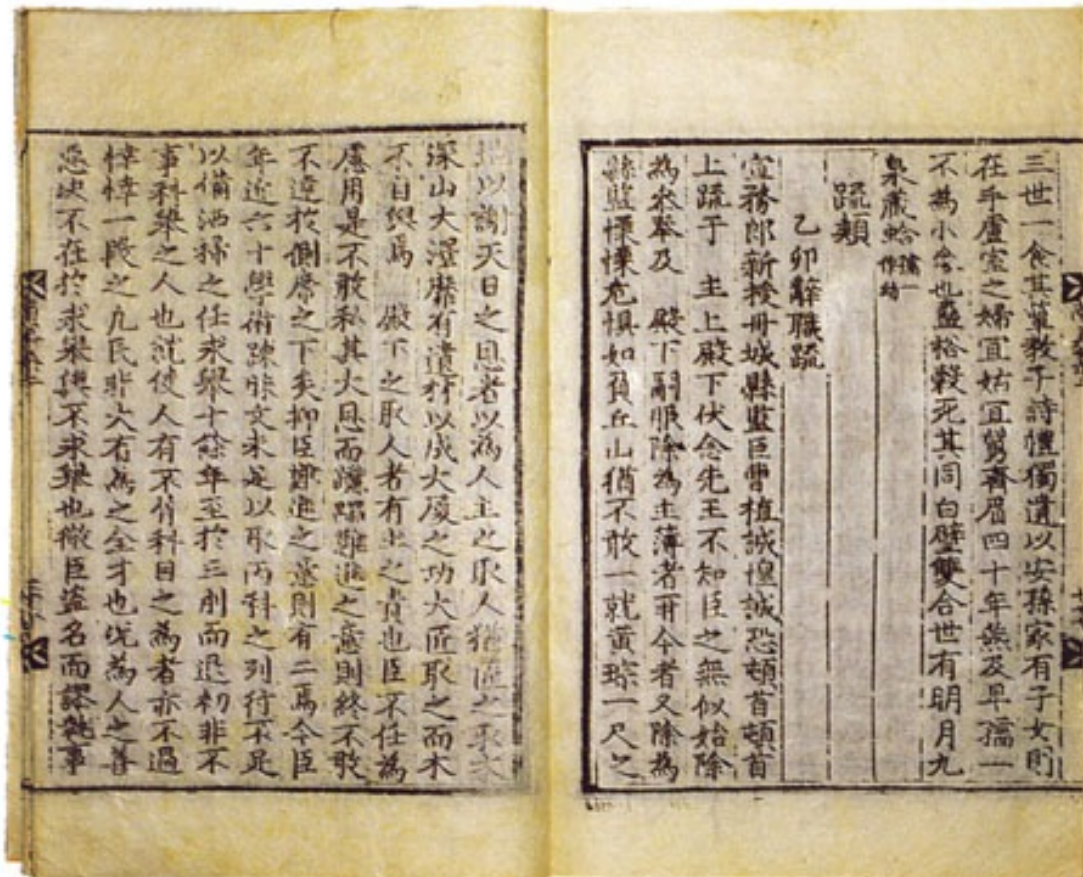 三世一食其菫教子詩禮獨遺以安孫家有子女則
在乎盧室之婦冝姑冝舅齊眉四十年無及卑孺一
不為小也盍啓穀死其同白璧雙合世有明月九
泉藏蛤孺一作幼
疏類
乙卯辭職疏
宣務郎新授丹城縣監臣曺植誠惶誠恐頓首頓首
上疏于 主上殿下伏念先王不知臣之無似始除
為叅奉及 殿下嗣服除為主薄者再今者又除為
縣監慄慄危懼如負丘山猶不敢一就黃琮一尺之
地以謝天日之恩者以為人主之取人猶匠之取木
深山大澤靡有遺材以成大厦之功大匠取之而木
不自與焉 殿下之取人者有土之責也臣不任為
慮用是不敢私其大恩而躑躅難進之意則終不敢
不達於側席之下矣抑臣難進之意則有二焉今臣
年近六十學術踈昧文未足以取丙科之列行不足
以備洒掃之任求擧十餘年至於三刖而退初非不
事科擧之人也就使人有不屑科目之為者亦不過
悻悻一段之凡民非大有為之全才也况為人之善
惡決不在於求擧與不求擧也微臣盜名而謬執事